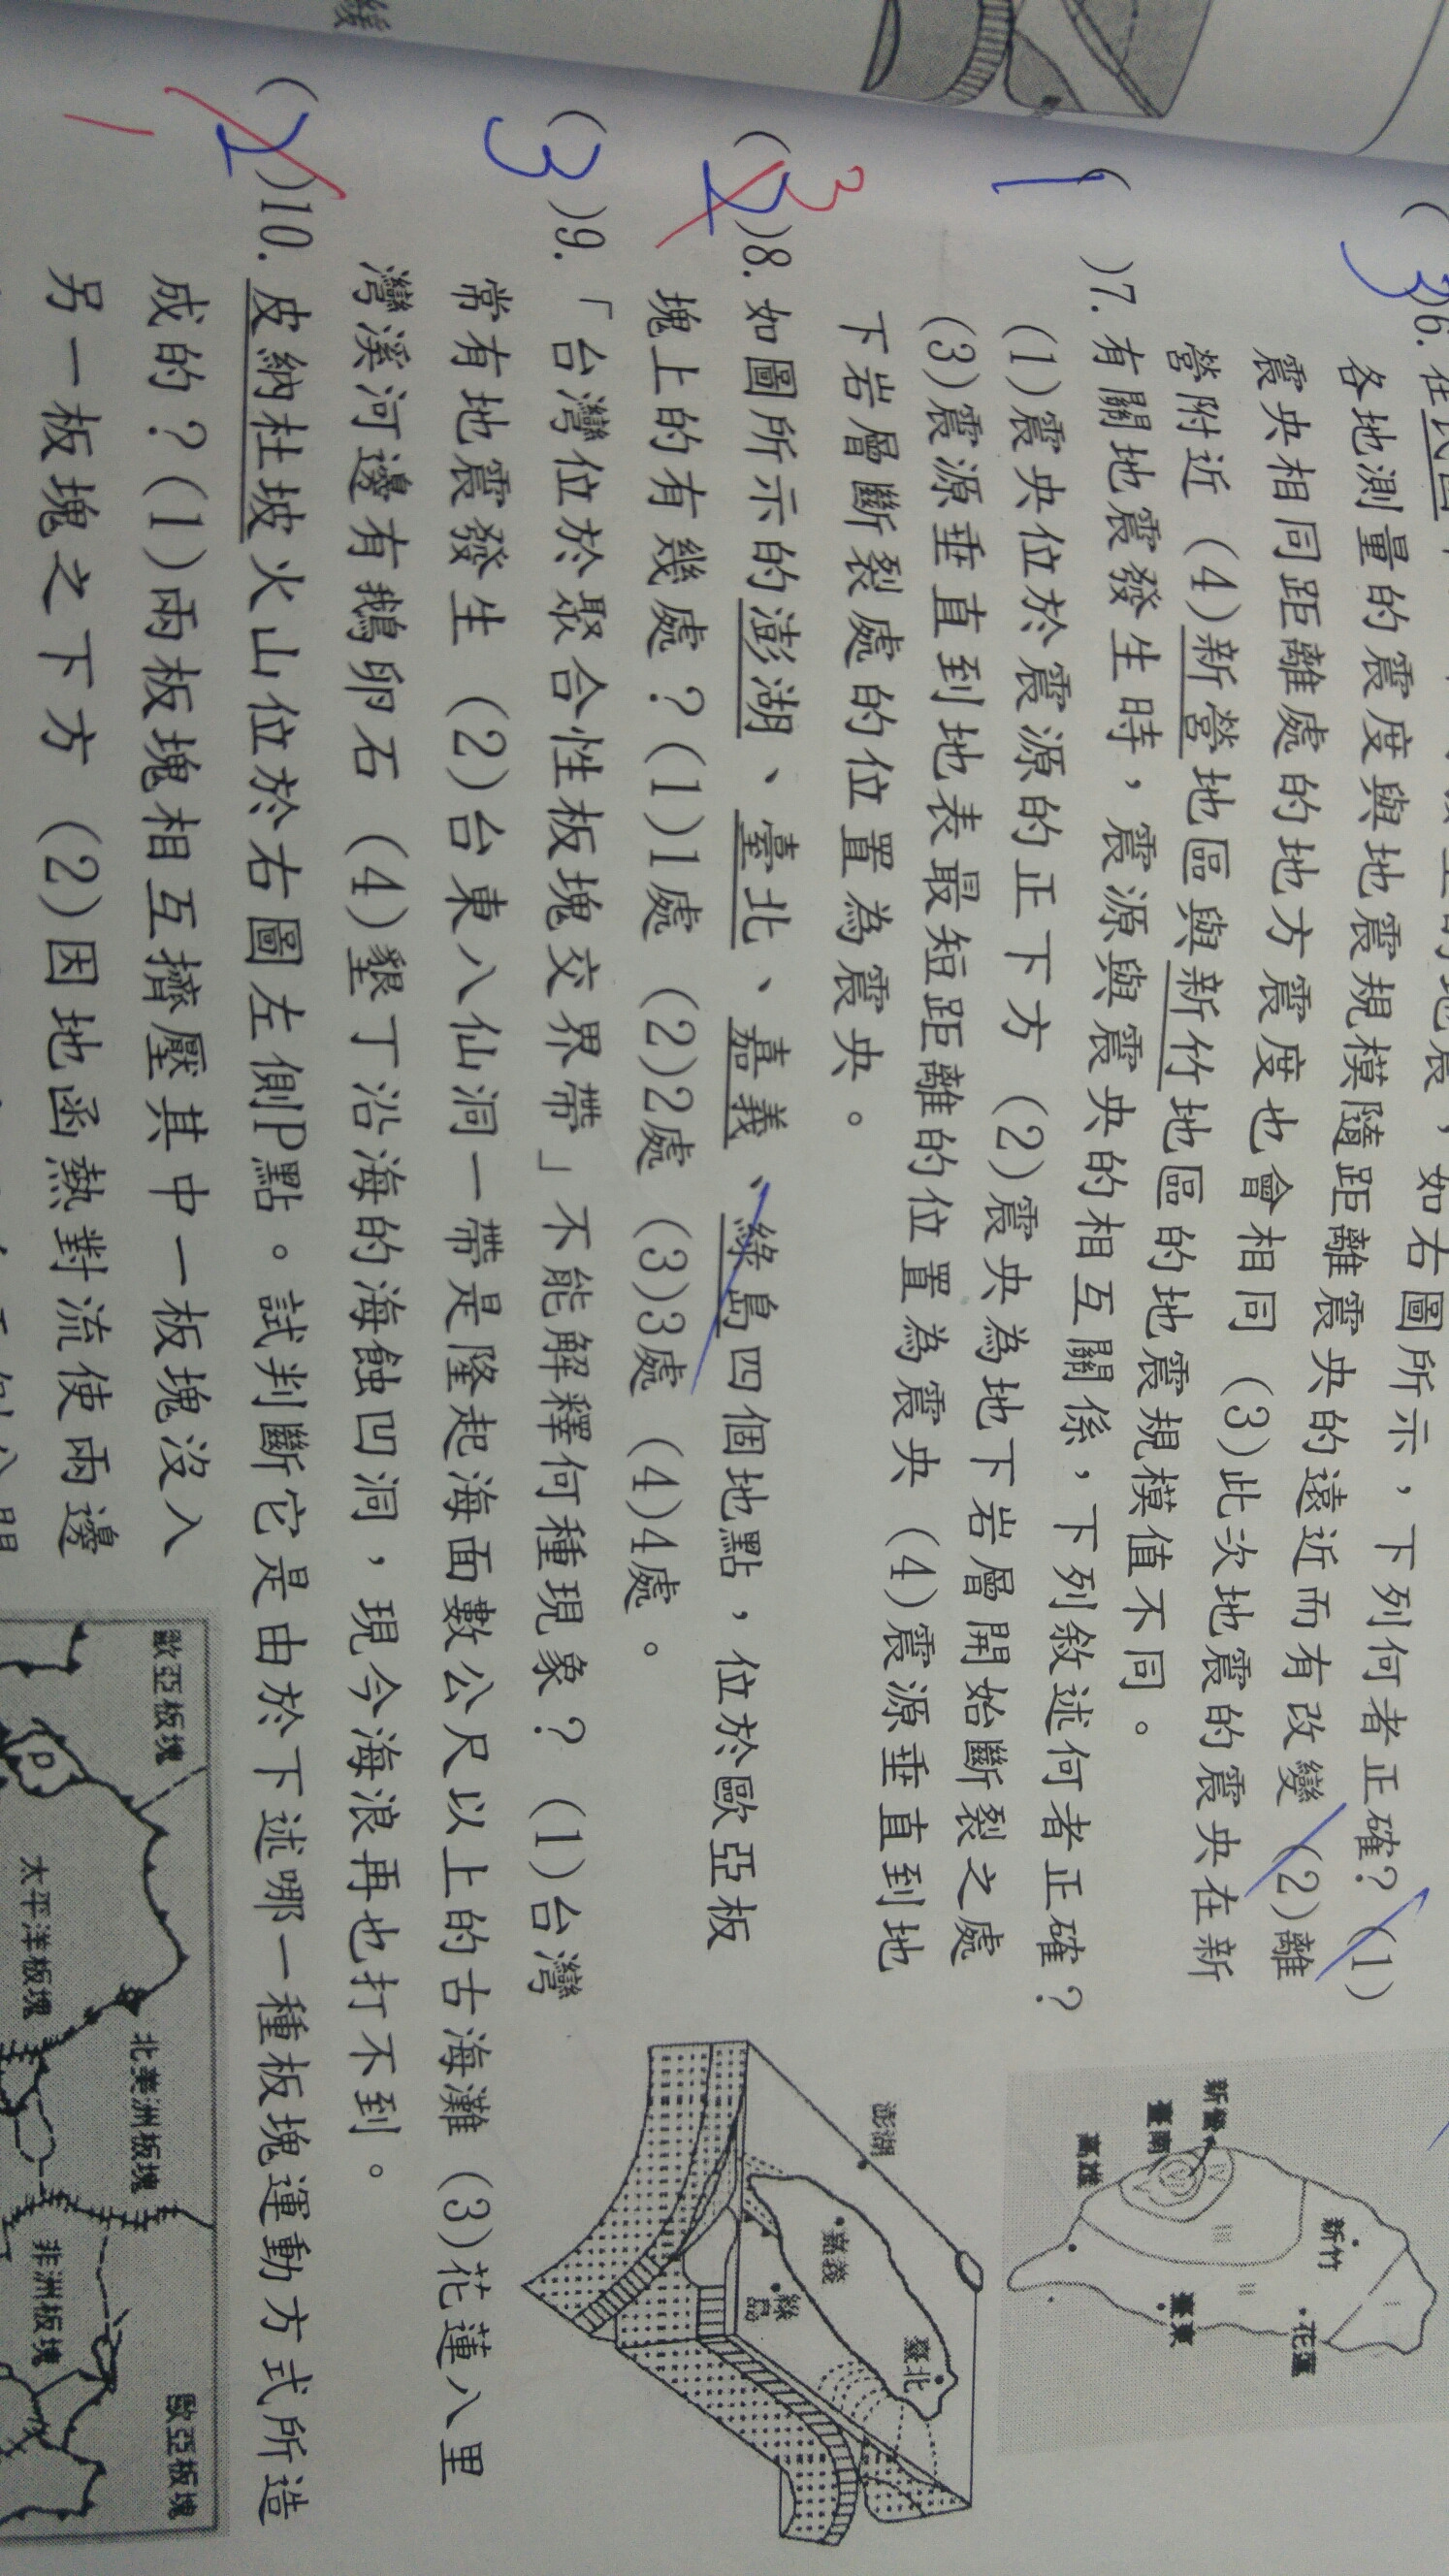 (3)6. 在民國
如右圖所示，下列何者正確？(1)
各地測量的震度與地震規模隨距離震央的遠近而有改變 (2)離
震央相同距離處的地方震度也會相同 (3)此次地震的震央在新
營附近 (4)新營地區與新竹地區的地震規模值不同。
(1)7. 有關地震發生時，震源與震央的相互關係，下列敘述何者正確？
(1)震央位於震源的正下方 (2)震央為地下岩層開始斷裂之處
(3)震源垂直到地表最短距離的位置為震央 (4)震源垂直到地
下岩層斷裂處的位置為震央。
3
(2)8. 如圖所示的澎湖、臺北、嘉義、綠島四個地點，位於歐亞板
塊上的有幾處？(1)1處 (2)2處 (3)3處 (4)4處。
(3)9. 「台灣位於聚合性板塊交界帶」不能解釋何種現象？ (1)台灣
常有地震發生 (2)台東八仙洞一帶是隆起海面數公尺以上的古海灘 (3)花蓮八里
灣溪河邊有鵝卵石 (4)墾丁沿海的海蝕凹洞，現今海浪再也打不到。
(2)10. 皮納杜坡火山位於右圖左側P點。試判斷它是由於下述哪一種板塊運動方式所造
1
成的？(1)兩板塊相互擠壓其中一板塊沒入
另一板塊之下方 (2)因地函熱對流使兩邊
新營
臺南
高雄
新竹
花蓮
臺東
澎湖
嘉義
綠島
臺北
歐亞板塊
P
太平洋板塊
北美洲板塊
非洲板塊
歐亞板塊